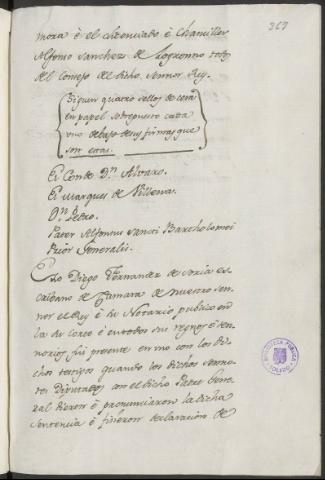 367
mora è el Licenciado è Chanciller
Alfonso Sanchez de Logronno todos
del Consejo de dicho sennor Rey.
Siguen quatro sellos de cera
en papel sobrepuesto cada
uno debaxo de sus firmas que
son estas.
El Conde Dn. Alvaro.
El Marques de Villena.
Dn. Pedro.
Pater Alfonsus Sancti Bartholomei
Prior Generalis.
E Yo Diego Fernandez de Soria es
cribano de Camara de nuestro sen
nor el Rey è su Notario publico en
la su Corte è en todos sus regnos è sen
norios, fui presente en uno con los di
chos testigos quando los dichos senno
res Diputados con el dicho Padre Gene
ral dieron è pronunciaron la dicha
sentencia è ficieron declaracion de
BIBLIOTECA PUBLICA
TOLEDO